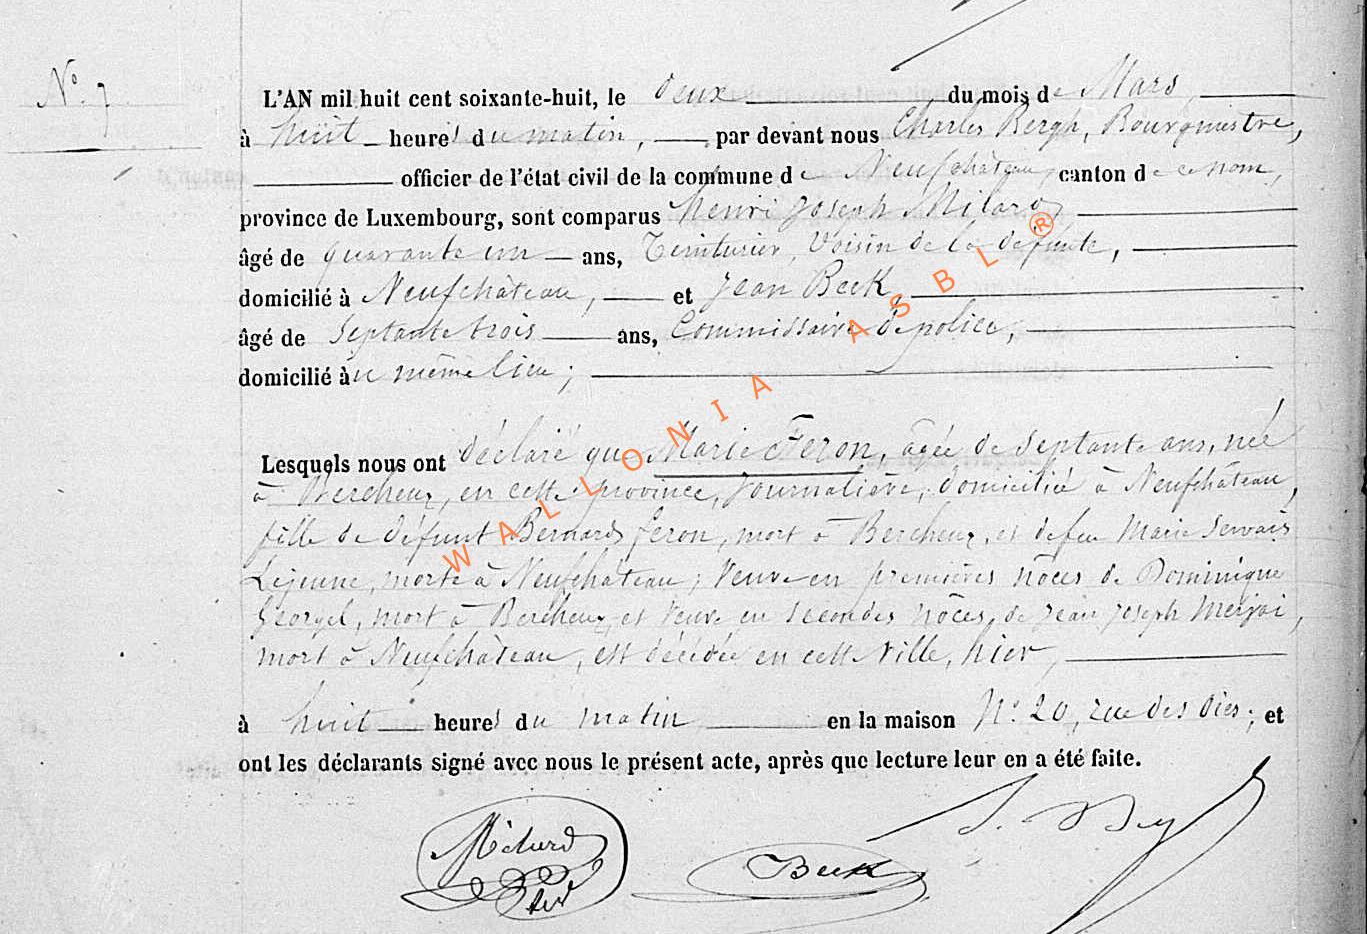 N° 7
L'AN mil huit cent soixante-huit, le deux du mois de Mars
à huit heures du matin, par devant nous Charles Bergh, Bourgmestre,
officier de l'état civil de la commune de Neufchâteau, canton de ce nom,
province de Luxembourg, sont comparus Henri Joseph Milard,
âgé de quarante un ans, Teinturier, Voisin de la défunte,
domicilié à Neufchâteau, et Jean Beck,
âgé de septante trois ans, Commissaire de police,
domicilié au même lieu;
Lesquels nous ont déclaré que Marie Feron, âgée de septante ans, née
à Bercheux, en cette province, Journalière, domicilié à Neufchâteau,
fille de défunt Bernard feron, mort à Bercheux, et de feu Marie Servais
Lejeune, morte à Neufchâteau; Veuve en premières nôces de Dominique
Georgel, mort à Bercheux, et Veuve en secondes nôces, de Jean Joseph Merjai,
mort à Neufchâteau, est décédée en cette Ville, hier,
à huit heures du matin, en la maison N° 20, rue des Oies; et
ont les déclarants signé avec nous le présent acte, après que lecture leur en a été faite.
Beck
WALLONIA ASBL ®